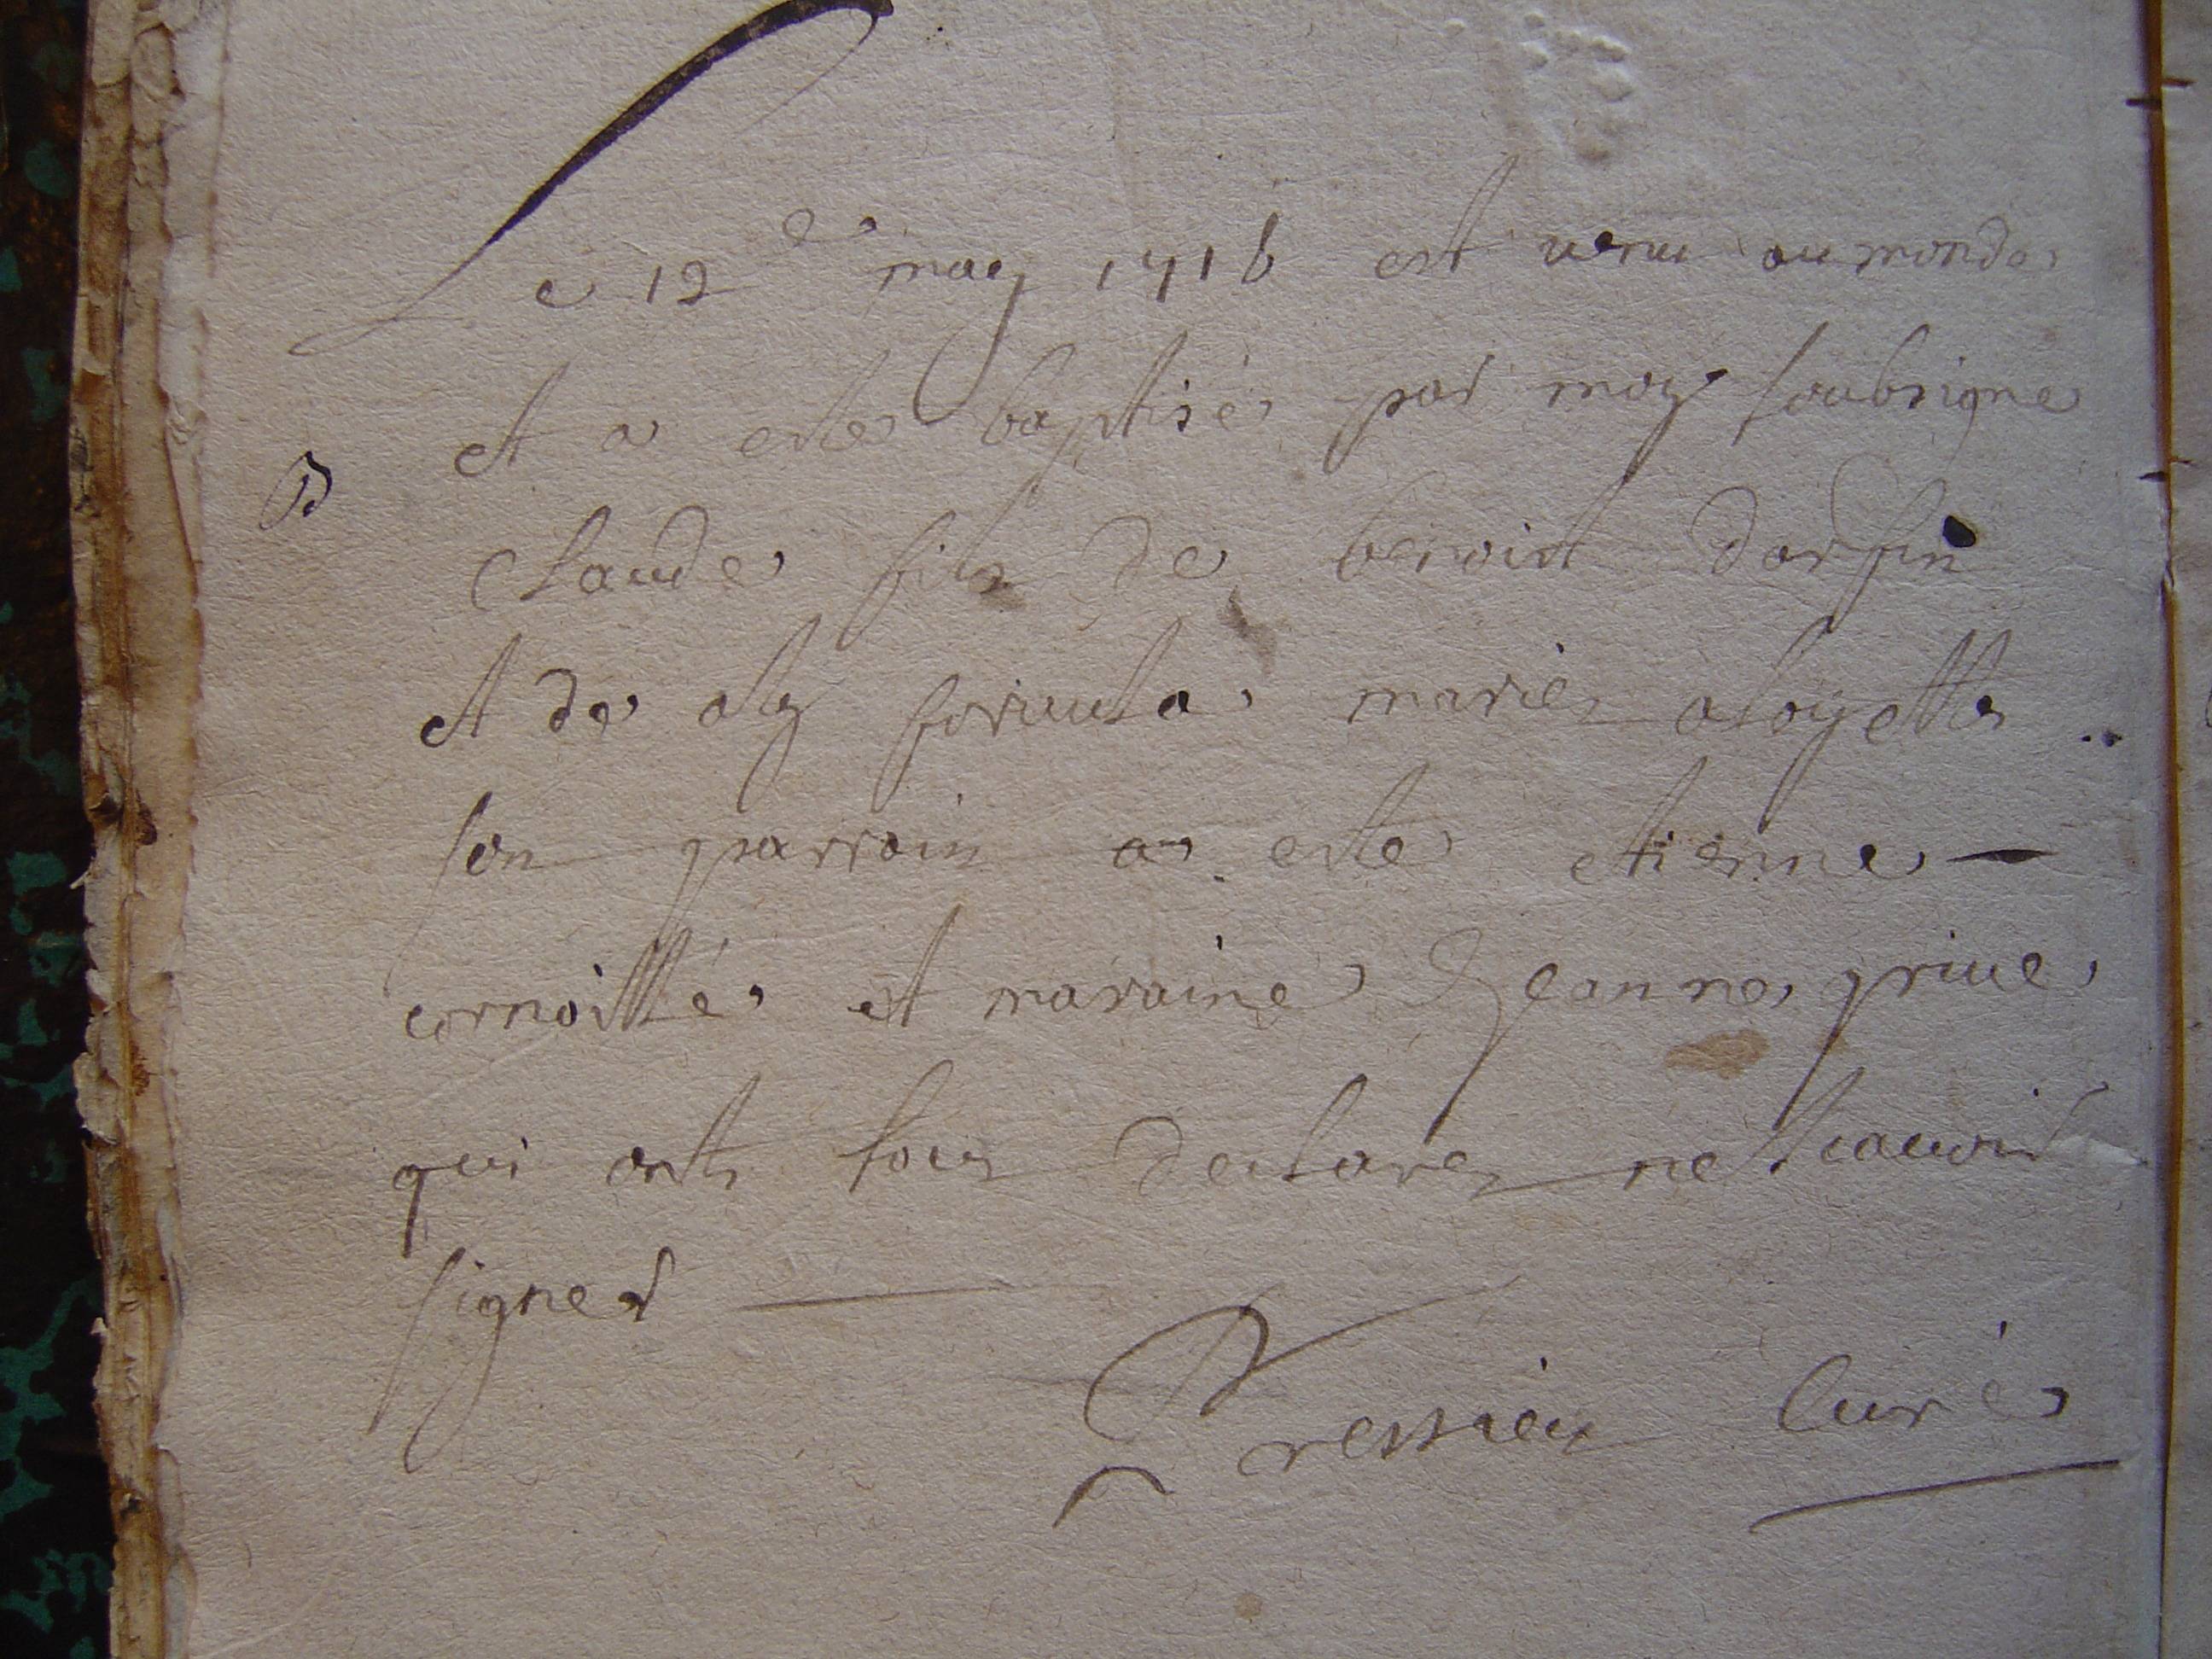 Le 12e may 1718 est venu au monde
et a este baptisé par moy soubsigne
B
Claude fils de benoist dorfin
et de aly marie aloyette
son parrain a este etienne —
cornoitté et maraine Jeanne grive
qui onts tous declarez ne scauoir
signer
Pressieu Curé